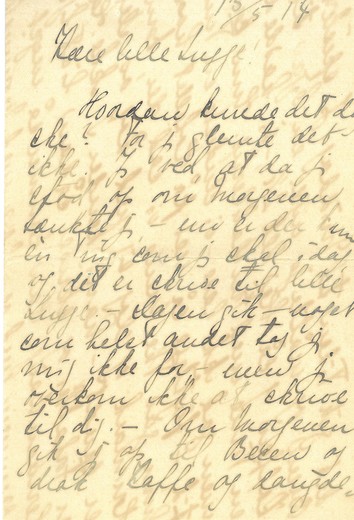 13/5 14
Kære lille Lugge!
Hvordan kunde det da
ske? For jeg glemte det
ikke. Jeg ved, at da jeg
stod op om Morgenen
tænkte jeg – nu er der
en Ting som jeg skal i dag
og det er skrive til lille
Lugge. – Dagen gik – noget
som helst andet tog jeg
mig ikke for, – men jeg
overkom ikke at skrive
til dig. – Om Morgenen
gik jeg op til Been og
drak Kaffe og